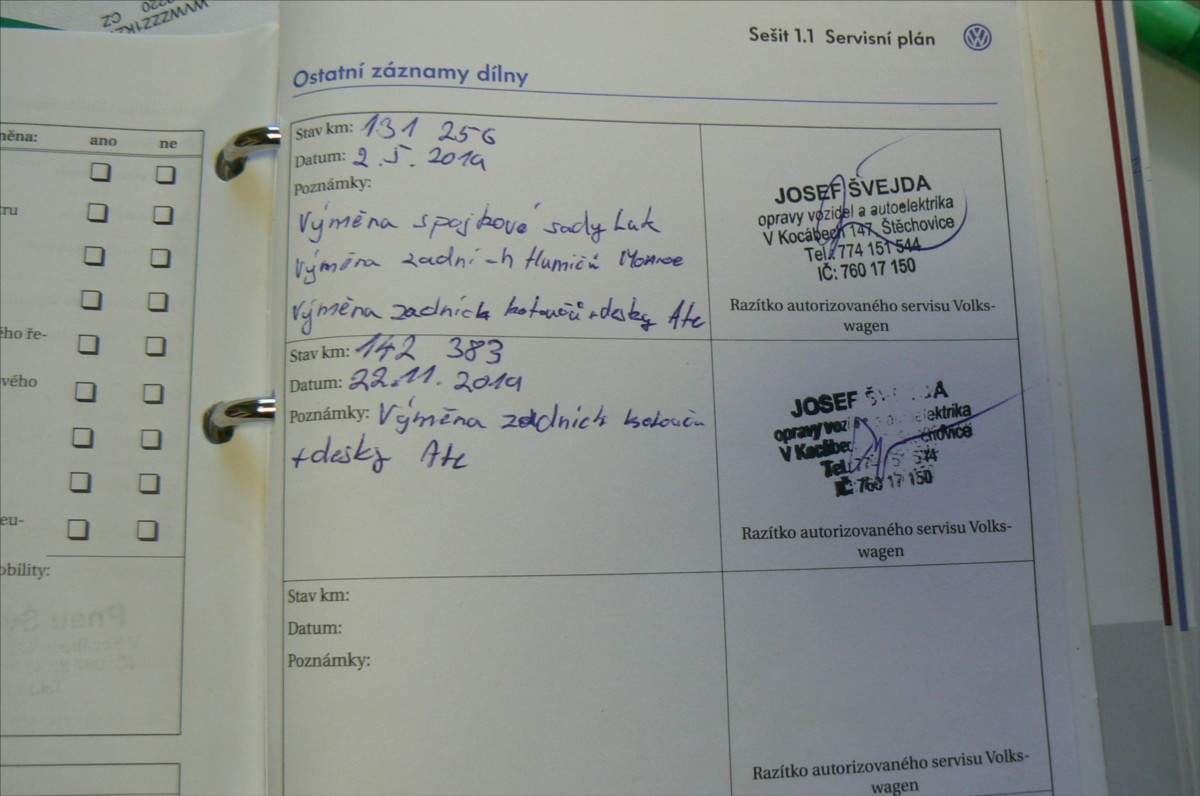 WVWZZZ1KZ
CZ
Sešit 1.1 Servisní plán
Ostatní záznamy dílny
ano
ne
Stav km: 131 256
Datum: 2.5.2019
Poznámky:
Výměna spojkové sady Luk
Výměna zadních tlumičů Monroe
Výměna zadních kotoučů + desky Ate
JOSEF ŠVEJDA
opravy vozidel a autoelektrika
V Kocábech 147, Štěchovice
Tel.: 774 151 544
IČ: 760 17 150
Razítko autorizovaného servisu Volks-
wagen
Stav km: 142 383
Datum: 22.11.2019
Poznámky: Výměna zadních kotoučů
+ desky Ate
JOSEF
opravy
V
Tel.:
IČ: 760 17 150
Razítko autorizovaného servisu Volks-
wagen
Stav km:
Datum:
Poznámky:
Razítko autorizovaného servisu Volks-
wagen